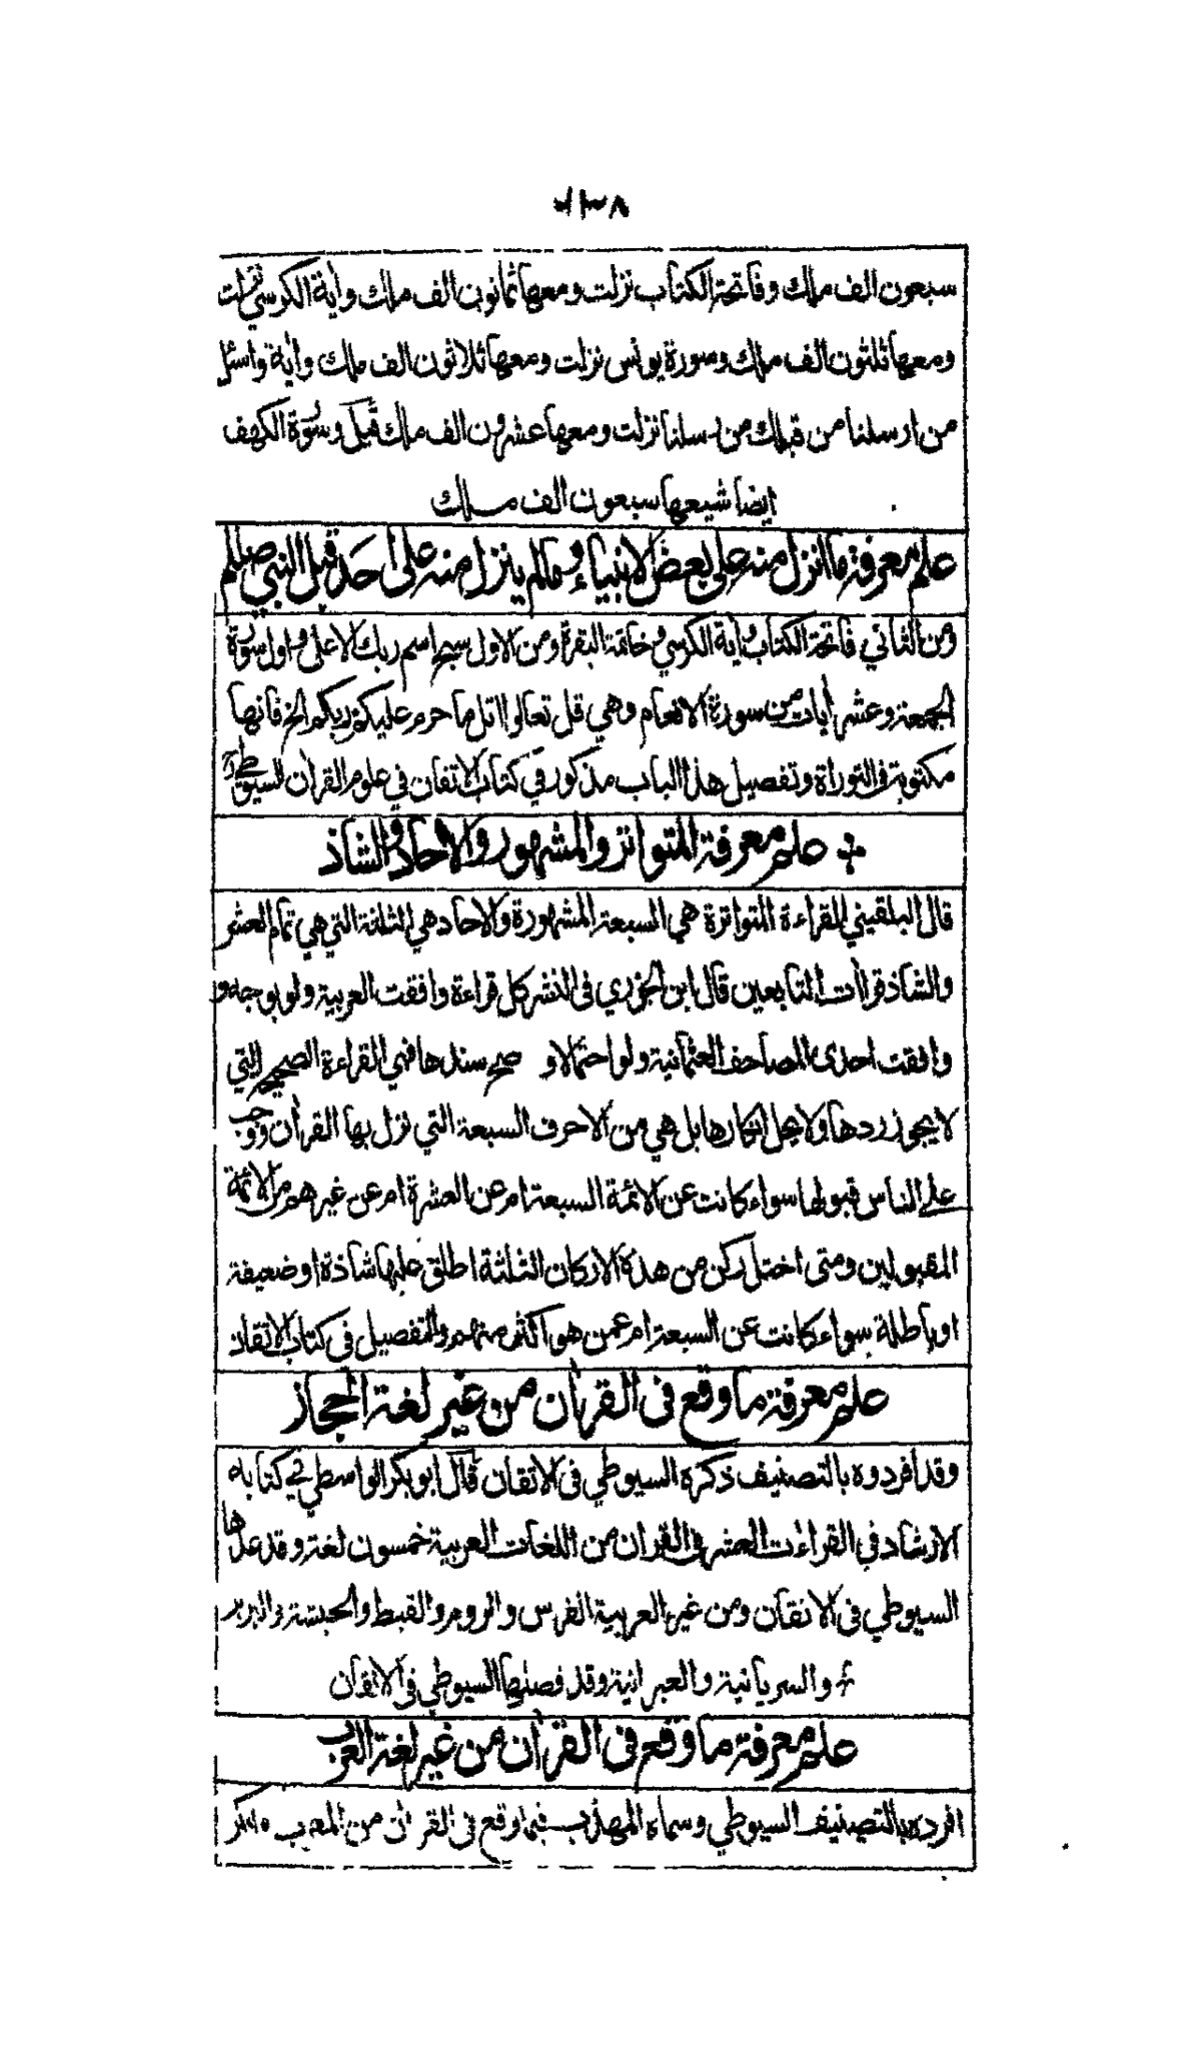 ٧٣٨
سبعون الف ملك وفاتحة الكتاب نزلت ومعها ثمانون الف ملك واية الكرسي نزلت
ومعها ثلثون الف ملك وسورة يونس نزلت ومعها ثلاثون الف ملك وأية واسئل
من ارسلنا من قبلك من رسلنا نزلت ومعها عشرون الف ملك قيل وسورة الكهف
ايضا شيعها سبعون الف ملك
علم معرفة ما انزل منه على بعض الانبياء وما لم ينزل منه على احد قبل النبي صللم
ومن الثاني فاتحة الكتاب وأية الكرسي وخاتمة البقرة ومن الاول سبح اسم ربك الاعلى واول سورة
الجمعة وعشر أيات من سورة الانعام وهي قل تعالوا اتل ما حرم عليكم ربكم الخ فانها
مكتوبة في التوراة وتفصيل هذا الباب مذكور في كتاب الاتقان في علوم القرأن للسيوطي رح
علم معرفة المتواتر والمشهور والاحاد والشاذ
قال البلقيني للقراءة المتواترة هي السبعة المشهورة والاحاد هي الثلثة التي هي تمام العشر
والشاذ قراأت التابعين قال ابن الجزري في النشر كل قراءة وافقت العربية ولو بوجه و
وافقت احدى المصاحف العثمانية ولو احتمالا و صح سندها فهي القراءة الصحيحة التي
لا يجوز ردها ولا يحل انكارها بل هي من الاحرف السبعة التي نزل بها القرأن ووجب
على الناس قبولها سواء كانت عن الائمة السبعة ام عن العشرة ام عن غيرهم من الائمة
المقبولين ومتى اختل ركن من هذه الاركان الثلثة اطلق عليها شاذة او ضعيفة
او باطلة سواء كانت عن السبعة ام عمن هو اكثر منهم والتفصيل في كتاب الاتقان
علم معرفة ما وقع في القرأن من غير لغة الحجاز
وقد افردوه بالتصنيف ذكره السيوطي في الاتقان قال ابو بكر الواسطي في كتابه
الارشاد في القراءت العشر في القرأن من اللغات العربية خمسون لغة وقد عدها
السيوطي في الاتقان ومن غير العربية الفرس والروم والقبط والحبشة والبربر
والسريانية والعبرانية وقد فصلها السيوطي في الاتقان
علم معرفة ما وقع في القرأن من غير لغة العرب
افرده بالتصنيف السيوطي وسماه المهذب فيما وقع في القرأن من المعرب